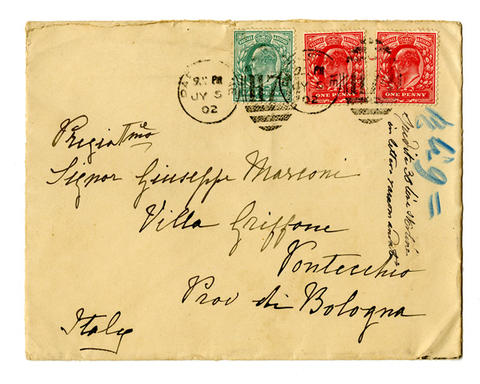 9.  PM
JY 5
02
ONE PENNY
ONE PENNY
Pregiatmo
Signor Giuseppe Marconi
Villa Griffone
Pontecchio
Prov di Bologna
Italy
in lettera